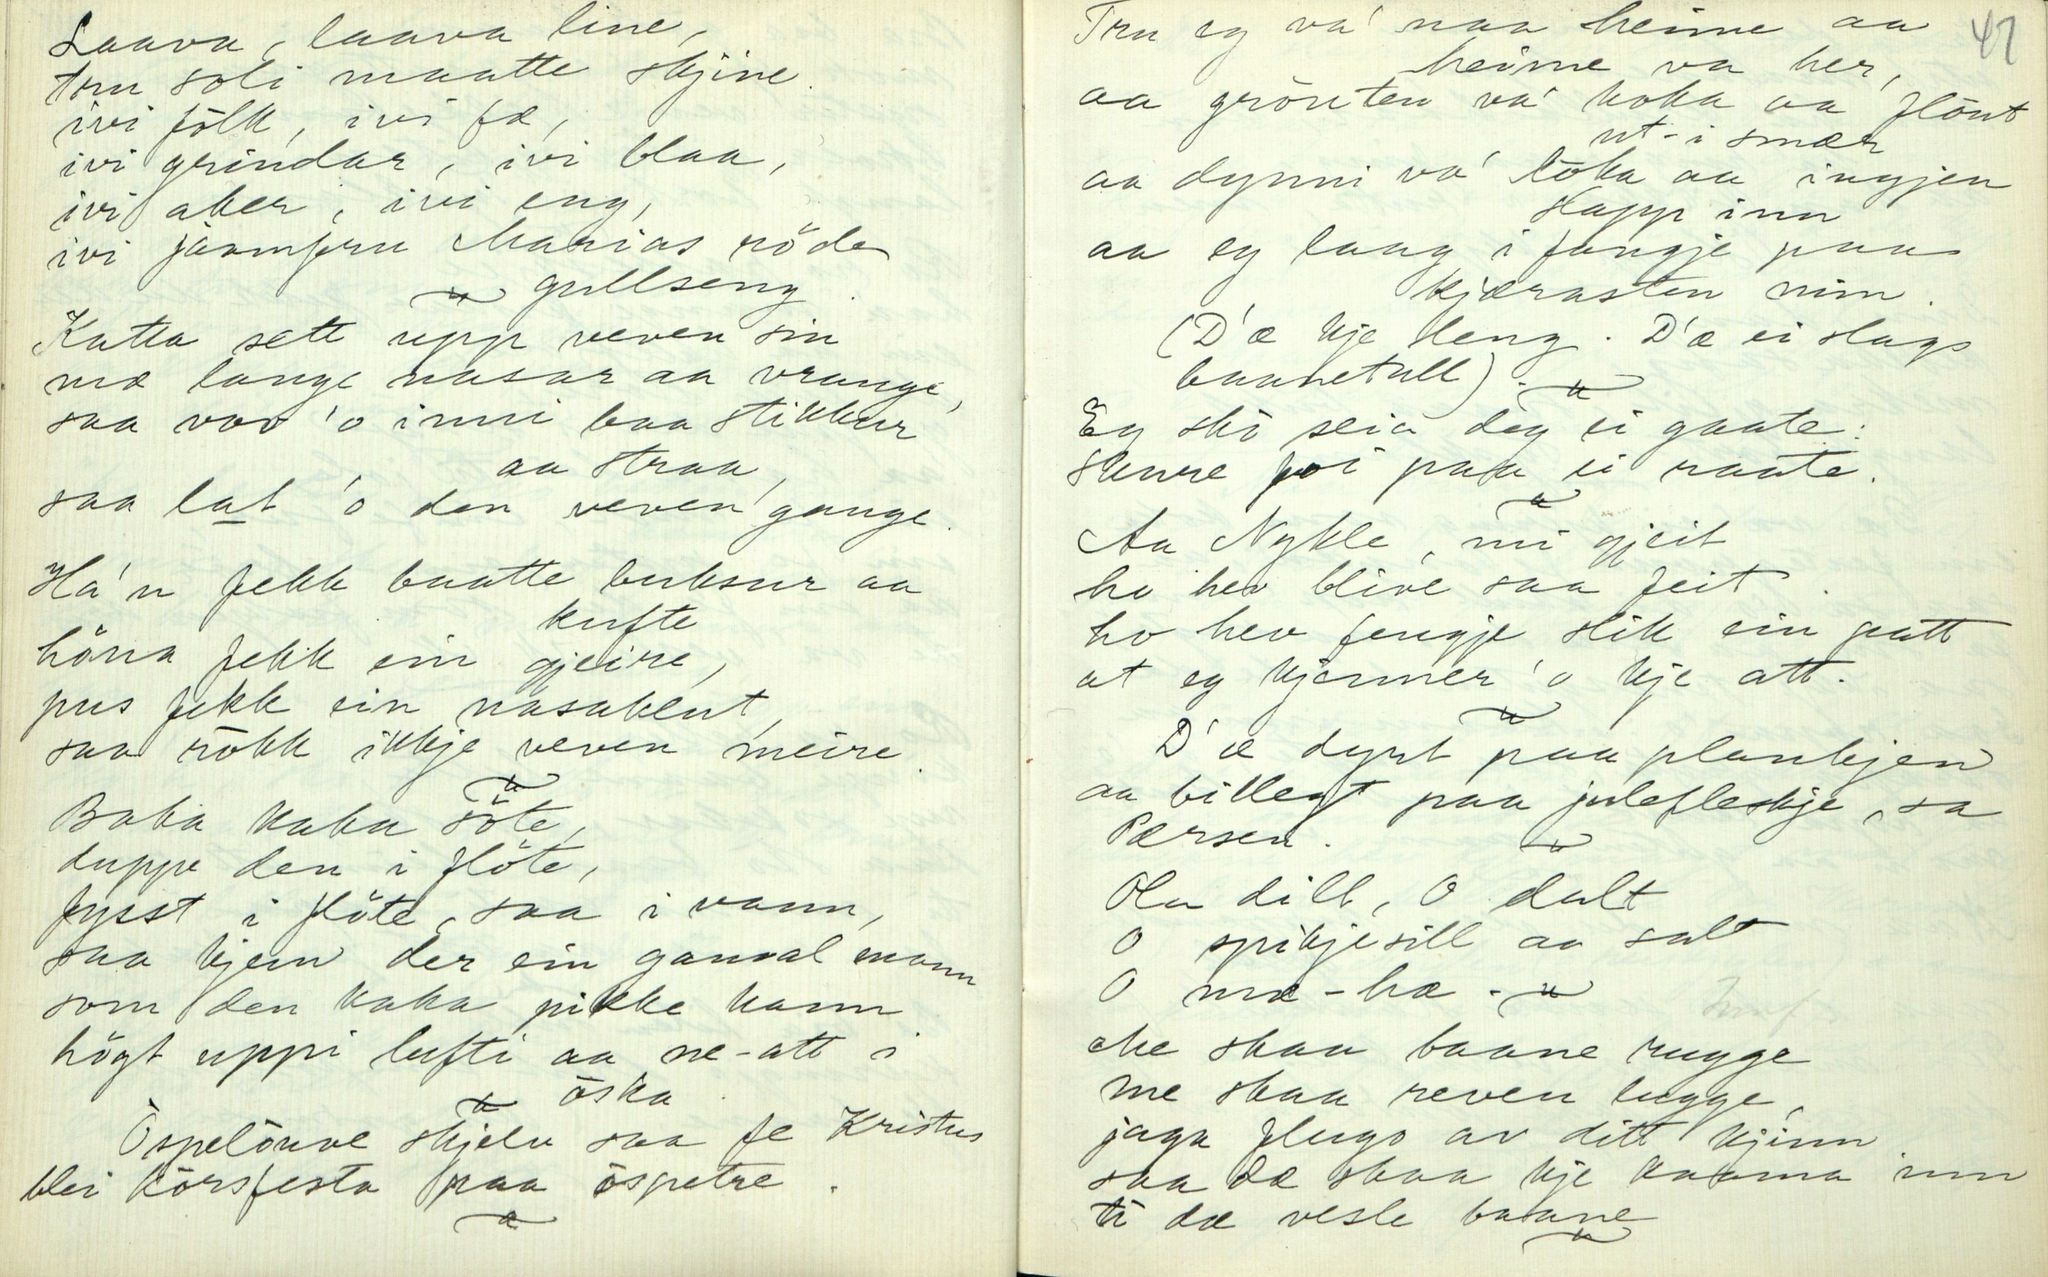 Laava, laava line,
tru soli maatte skjine.
ivi fölk, ivi fæ,
ivi grindar, ivi blaa,
ivi aker, ivi eng,
ivi jaamfru Marias röde
gullseng.
Katta sett upp veven sin
mæ lange nasar aa vrange,
saa vov 'o inni baa stikkur
aa straa,
saa lat 'o den veven gange.
Há'n fekk baatte buksur aa
kufte
höna fekk ein gjeire,
pus fekk ein nasaklut,
saa rökk ikkje veven meire.
Baka kaka söte,
duppe den i flöte,
fysst i flöte, saa i vann,
saa kjem der ein gamal mann
som den kaka pikke kann
högt uppi lufti aa ne-att i
öska.
Öspelöuve skjelv saa fe Kristus
blei körsfesta paa öspetre.
47
Tru eg va' naa heime aa
heime va her,
aa gröuten va' koka aa flöut
ut-i smær
aa dynni va' löka aa ingjen
slapp inn
aa eg laag i fangje paa
kjærasten min.
(D'æ kje leng. D'æ ei slags
baanetull).
Eg ski seia deg ei gaate:
skure foi paa ei raate.
Aa Nykle, mi gjeit
ho hev blive saa feit.
ho hev fengje slik ein patt
at eg kjenner 'o kje att.
D'æ dyrt paa plankjen
aa billegt paa julefleskje, sa
Pærsen.
Ola dill, O dalt
O spikjesill aa salt
O mæ-hæ.
Me skaa baane rugge
me skaa reven lugge,
jaga flugo av ditt kjinn
saa dæ skaa kje kaama inn
ti dæ vesle baane